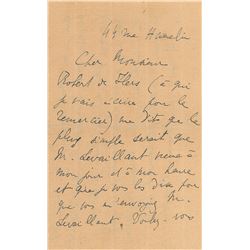 44 rue Hamelin
Cher Monsieur
Robert de Flers (à qui
je vais écrire pour le
remercier) me dit que le
plus simple serait que
M. Levaillant vienne à
mon jour et à mon heure
et que je vous les dise pour
que vous m'envoyiez M.
Levaillant. Voulez-vous